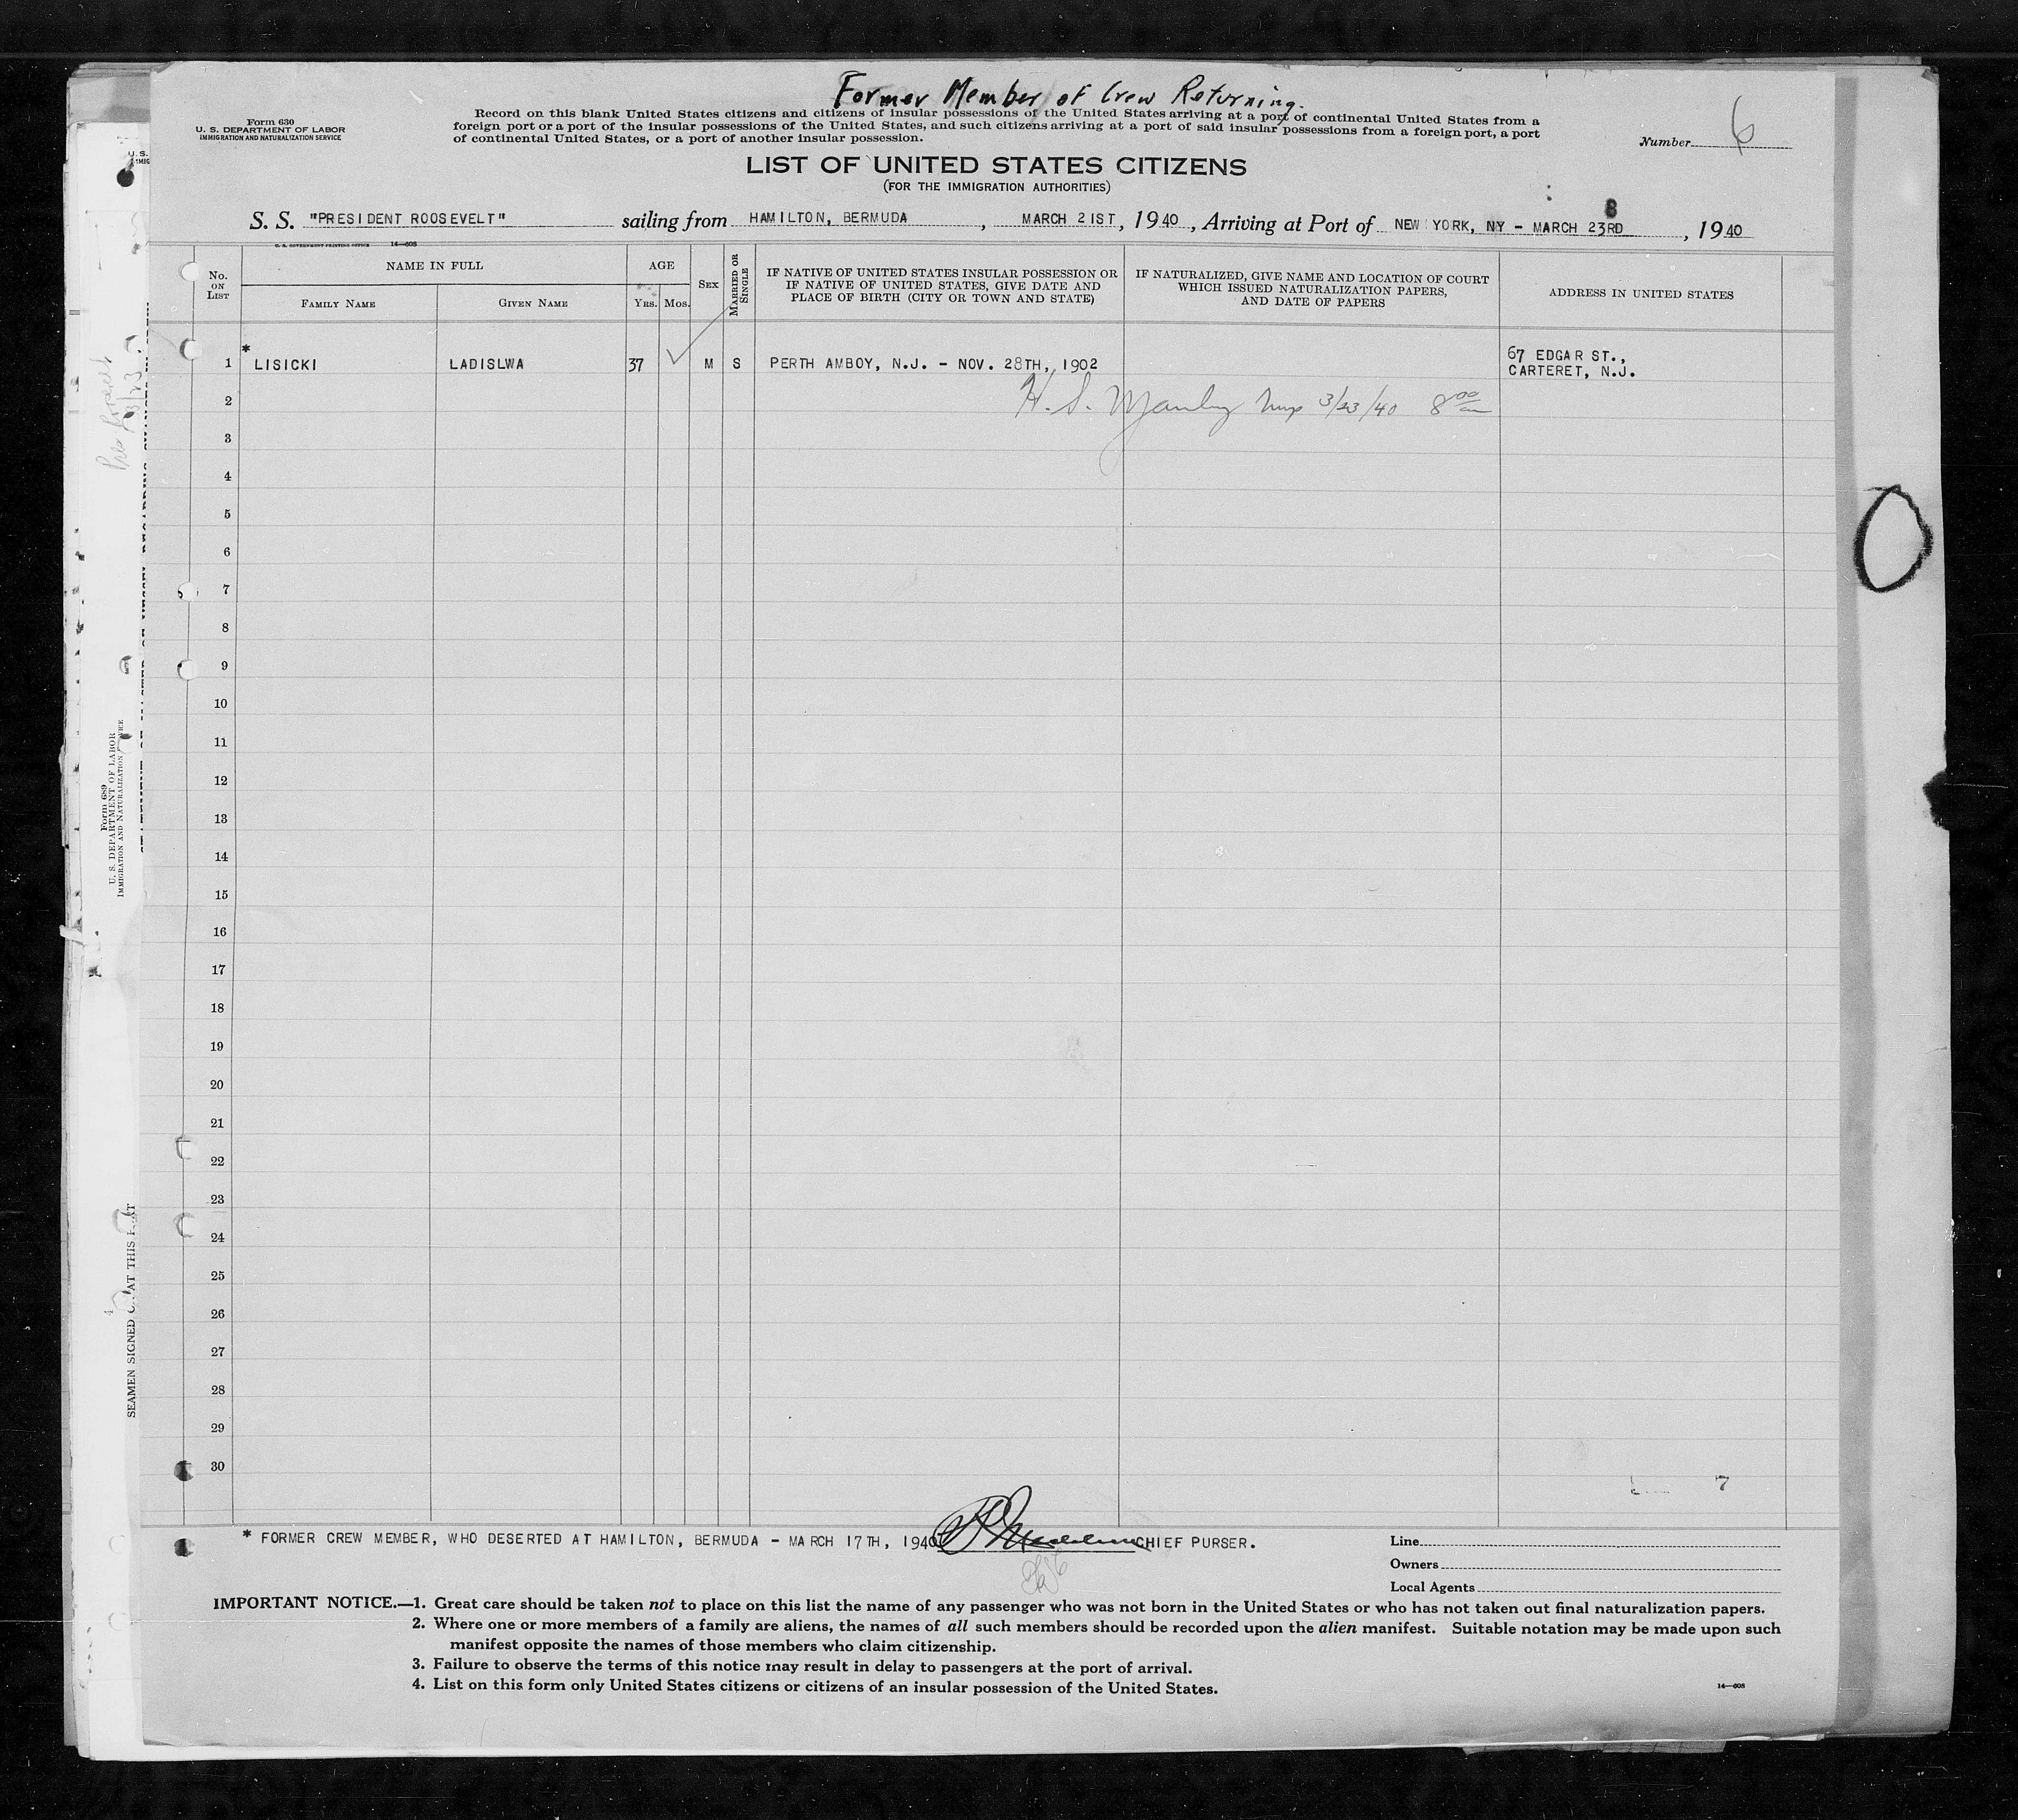 Former Member of Crew Returning.
Form 630
U. S. DEPARTMENT OF LABOR
IMMIGRATION AND NATURALIZATION SERVICE
Record on this blank United States citizens and citizens of insular possessions of the United States arriving at a port of continental United States from a
foreign port or a port of the insular possessions of the United States, and such citizens arriving at a port of said insular possessions from a foreign port, a port
of continental United States, or a port of another insular possession.
Number 6
LIST OF UNITED STATES CITIZENS
(FOR THE IMMIGRATION AUTHORITIES)
8
S. S. "PRESIDENT ROOSEVELT" sailing from HAMILTON, BERMUDA, MARCH 21ST, 1940, Arriving at Port of NEW YORK, NY - MARCH 23RD, 1940
U. S. GOVERNMENT PRINTING OFFICE 14—608
No. ON LIST
NAME IN FULL
FAMILY NAME
GIVEN NAME
AGE
YRS.
MOS.
SEX
MARRIED OR SINGLE
IF NATIVE OF UNITED STATES INSULAR POSSESSION OR
IF NATIVE OF UNITED STATES, GIVE DATE AND
PLACE OF BIRTH (CITY OR TOWN AND STATE)
IF NATURALIZED, GIVE NAME AND LOCATION OF COURT
WHICH ISSUED NATURALIZATION PAPERS,
AND DATE OF PAPERS
ADDRESS IN UNITED STATES
1 * LISICKI LADISLWA 37 M S PERTH AMBOY, N.J. - NOV. 28TH, 1902 67 EDGAR ST.,
CARTERET, N.J.
2 H. S. 3/23/40 8 00 am
3
4
5
6
7
8
9
10
11
12
13
14
15
16
17
18
19
20
21
22
23
24
25
26
27
28
29
30
7
* FORMER CREW MEMBER, WHO DESERTED AT HAMILTON, BERMUDA - MARCH 17TH, 1940 CHIEF PURSER.
Line
Owners
Local Agents
IMPORTANT NOTICE.—1. Great care should be taken not to place on this list the name of any passenger who was not born in the United States or who has not taken out final naturalization papers.
2. Where one or more members of a family are aliens, the names of all such members should be recorded upon the alien manifest. Suitable notation may be made upon such
manifest opposite the names of those members who claim citizenship.
3. Failure to observe the terms of this notice may result in delay to passengers at the port of arrival.
4. List on this form only United States citizens or citizens of an insular possession of the United States.
14—608
Form 689
U. S. DEPARTMENT OF LABOR
IMMIGRATION AND NATURALIZATION
SEAMEN SIGNED AT THIS